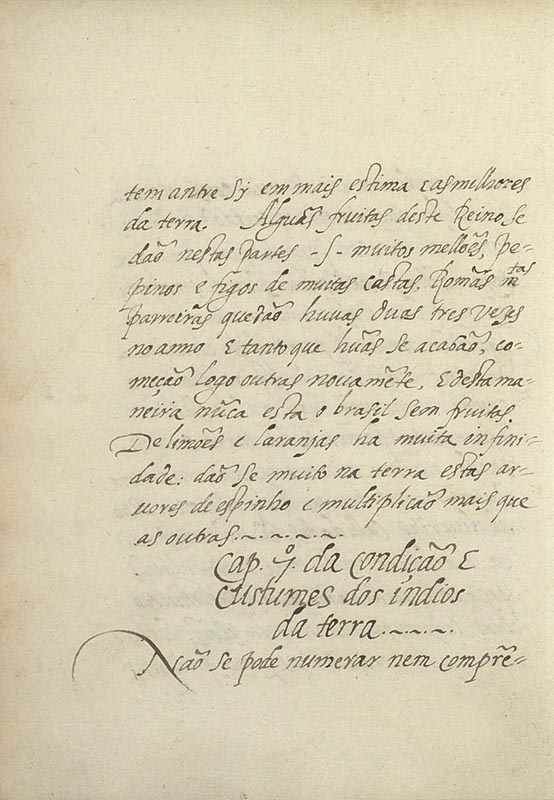 tem antre Sy em mais estima e as milhores
da terra. Alguãs fruitas deste Reino se
daõ nestas partes -s- muitos melloẽs, pe-
pinos e figos de muitas castas, Romãs mtas
parreirãs que daõ huuas duas tres vezes
no anno E tanto que huãs se acabaõ, co-
meçaõ logo outras novamẽte, E desta ma-
neira nũca esta o brasil sem fruitas.
De limões e laranjas ha muita infini-
dade: daõ se muito na terra estas ar-
uores de espinho e multiplicaõ mais que
as outras.~.~.~.~.~.
Cap.º 7. da condiçaõ E
Custumes dos indios
da terra.~.~.~.
Naõ se pode numerar nem comprẽ-